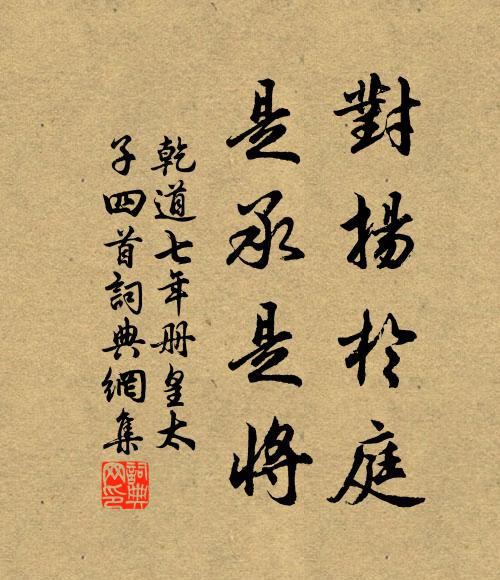 對揚於庭
是承是將
乾道七年册皇太
子四首詞典網集
詞典
网印